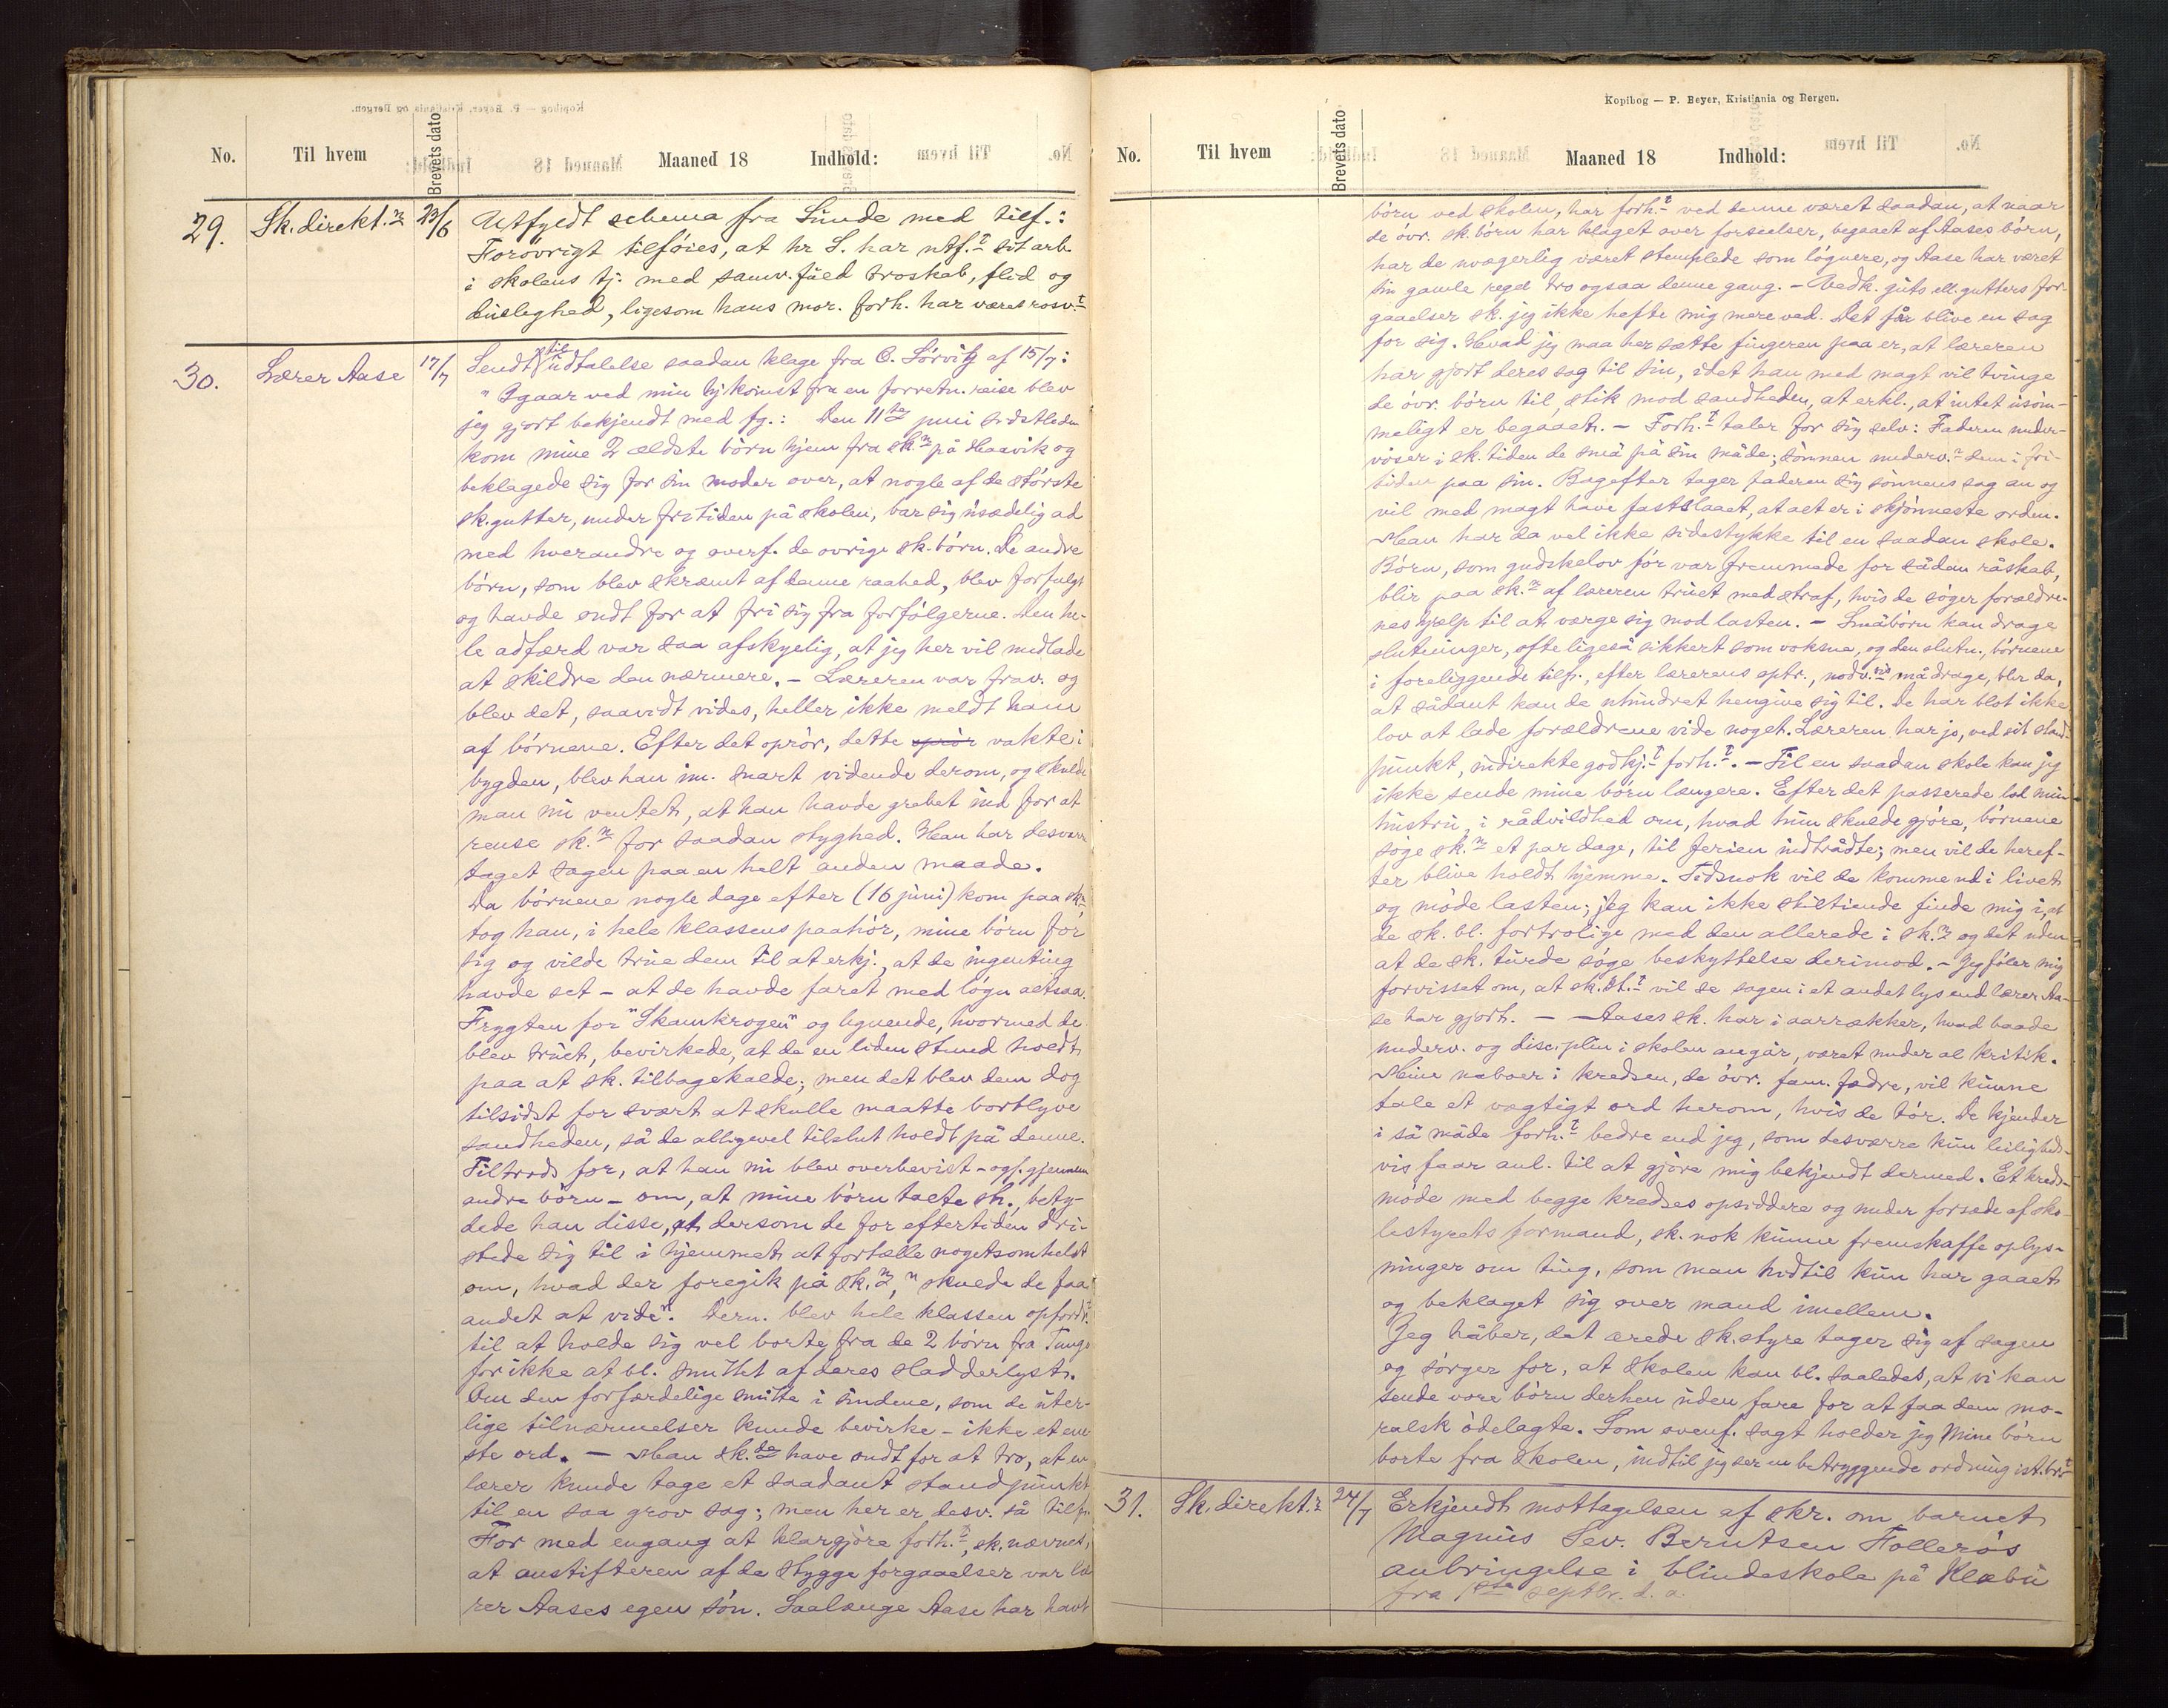 Kopibog — P. Beyer, Kristiania og Bergen.
No. Til hvem Brevets dato Maaned 18 Indhold:
29. Sk. direkt.n 23/6 Utfyldt schema fra Sunde med tilf.:
Forøvrigt tilføies, at hr S. har utf.t sit arb.
i skolens tj. med samv.fuld troskab, flid og
duelighed, ligesom hans mor. forh. har været rosv.t
30. Lærer Aase 17/7 Sendt til udtalelse saadan klage fra O. Sørvik af 15/7:
"Igaar ved min hj.komst fra en forretn.reise blev
jeg gjort bekjendt med fg.: Den 11te juni sidstleden
kom mine 2 ældste børn hjem fra sk.n på Haavik og
beklagede sig for sin moder over, at nogle af de største
sk.gutter, under fritiden på skolen, bar sig usædelig ad
med hverandre og overf. de øvrige sk.børn. De andre
børn, som blev skræmt af denne raahed, blev forfulgt
og havde ondt for at fri sig fra forfølgerne. Den he-
le adfærd var saa afskyelig, at jeg her vil undlade
at skildre den nærmere. – Læreren var frav. og
blev det, saavidt vides, heller ikke meldt ham
af børnene. Efter det oprør, dette oprør vakte i
bygden, blev han im. snart vidende derom, og skulde
man nu ventet, at han havde grebet ind for at
rense sk.n for saadan styghed. Han har desværre
taget sagen paa en helt anden maade.
Da børnene nogle dage efter (16 juni) kom paa sk.n,
tog han, i hele klassens paahør, mine børn for
sig og vilde true dem til at erkj., at de ingenting
havde set – at de havde faret med løgn altsaa.
Frygten for "Skamkrogen" og lignende, hvormed de
blev truet, bevirkede, at de en liden stund holdt
paa at sk. tilbagekalde; men det blev dem dog
tilsidst for svært at skulle maatte bortlyve
sandheden, så de alligevel tilslut holdt på denne.
Tiltrods for, at han nu blev overbevist – ogs. gjennem
andre børn – om, at mine børn talte s., bety-
dede han disse, at dersom de for eftertiden dri-
stede sig til i hjemmet at fortælle nogetsomhelst
om, hvad der foregik på sk.n, "skulde de faa
andet at vide". Dern. blev hele klassen opfordr.t
til at holde sig vel borte fra de 2 børn fra Tunge
for ikke at bl. smittet af deres sladderlyst.
Om den forfærdelige smitte i sindene, som de uter-
lige tilnærmelser kunde bevirke – ikke et ene-
ste ord. – Man sk.de have ondt for at tro, at en
lærer kunde tage et saadant standpunkt
til en saa grov sag; men her er desv. så tilf.
For med engang at klargjøre forh.t, sk. nævnes,
at anstifteren af de stygge forgaaelser var læ-
rer Aases egen søn. Saalænge Aase har havt
Kopibog — P. Beyer, Kristiania og Bergen.
No. Til hvem Brevets dato Maaned 18 Indhold:
børn ved skolen, har forh.t ved denne været saadan, at naar
de øvr. sk.børn har klaget over forseelser, begaaet af Aases børn,
har de uvægerlig været stemplede som løgnere, og Aase har været
sin gamle regel tro ogsaa denne gang. – Vedk. guts ell. gutters for-
gaaelser sk. jeg ikke hefte mig mere ved. Det får blive en sag
for sig. Hvad jeg maa her sætte fingeren paa er, at læreren
har gjort deres sag til sin, idet han med magt vil tvinge
de øvr. børn til, stik mod sandheden, at erkl., at intet usøm-
meligt er begaaet. – Forh.t taler for sig selv: Faderen under-
viser i sk.tiden de små på sin måde; sønnen underv.r dem i fri-
tiden paa sin. Bagefter tager faderen sig sønnens sag an og
vil med magt have fastslaaet, at alt er i skjønneste orden.
Man har da vel ikke sidestykke til en saadan skole.
Børn, som gudskelov før var fremmede for sådan råskab,
blir paa sk.n af læreren truet med straf, hvis de søger forældre-
nes hjælp til at værge sig mod lasten. – Småbørn kan drage
slutninger, ofte ligeså sikkert som voksne, og den slutn., børnene
i foreliggende tilf., efter lærerens optr., nødv.vis må drage, blir da,
at sådant kan de uhindret hengive sig til. De har blot ikke
lov at lade forældrene vide noget. Læreren har jo, ved sit stand-
punkt, indirekte godkj.t forh.t. – Til en saadan skole kan jeg
ikke sende mine børn længere. Efter det passerede lod min
hustru, i rådvildhed om, hvad hun skulde gjøre, børnene
søge sk.n et par dage, til ferien indtrådte; men vil de heref-
ter blive holdt hjemme. Tidsnok vil de komme ud i livet
og møde lasten; jeg kan ikke stiltiende finde mig i, at
de sk. bl. fortrolige med den allerede i sk.n og det uden
at de sk. turde søge beskyttelse derimod. – Jeg føler mig
forvisset om, at sk.st.t vil se sagen i et andet lys end lærer Aa-
se har gjort. – Aases sk. har i aarrækker, hvad baade
underv. og disciplin i skolen angår, været under al kritik.
Mine naboer i kredsen, de øvr. fam.fædre, vil kunne
tale et vægtigt ord herom, hvis de tør. De kjender
i så måde forh.t bedre end jeg, som desværre kun leiligheds-
vis faar anl. til at gjøre mig bekjendt dermed. Et kreds-
møde med begge kredses opsiddere og under forsæde af sko-
lestyrets formand, sk. nok kunne fremskaffe oplys-
ninger om ting, som man hidtil kun har gaaet
og beklaget sig over mand imellem.
Jeg håber, det ærede sk.styre tager sig af sagen
og sørger for, at skolen kan bl. saaledes, at vi kan
sende vore børn derhen uden fare for at faa dem mo-
ralsk ødelagte. Som ovenf. sagt holder jeg mine børn
borte fra skolen, indtil jeg ser en betryggende ordning ist.br.t
31. Sk. direkt.n 24/7 Erkjendt mottagelsen af skr. om barnet
Magnus Sev. Berntsen Follerøs
anbringelse i blindeskole på Klæbu
fra 1ste septbr. d. a.